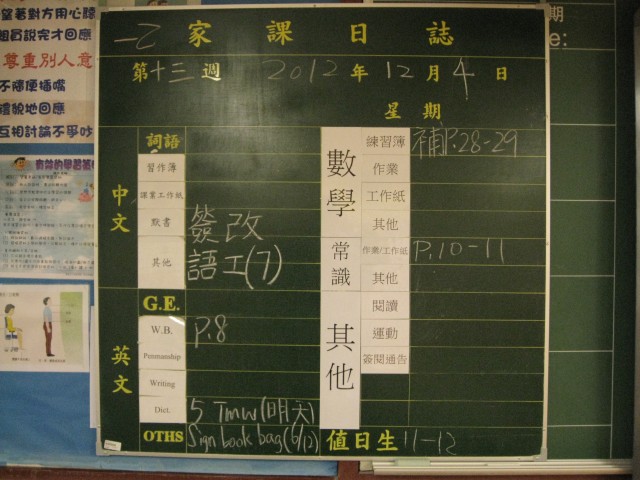 望著對方用心聽
組員說完才回應
尊重別人意
不隨便插嘴
禮貌地回應
互相討論不爭吵
一乙 家課日誌
第十三週 2012年12月4日
星期
中文
詞語
習作簿
課業工作紙
默書 簽改
其他 語工(7)
英文
G.E.
W.B. P.8
Penmanship
Writing
Dict. 5 Tmw(明天)
OTHS Sign book bag(6/12)
數學
練習簿 補P.28-29
作業
工作紙
其他
常識
作業/工作紙 P.10-11
其他
其他
閱讀
運動
簽閱通告
值日生 11-12
期
e: